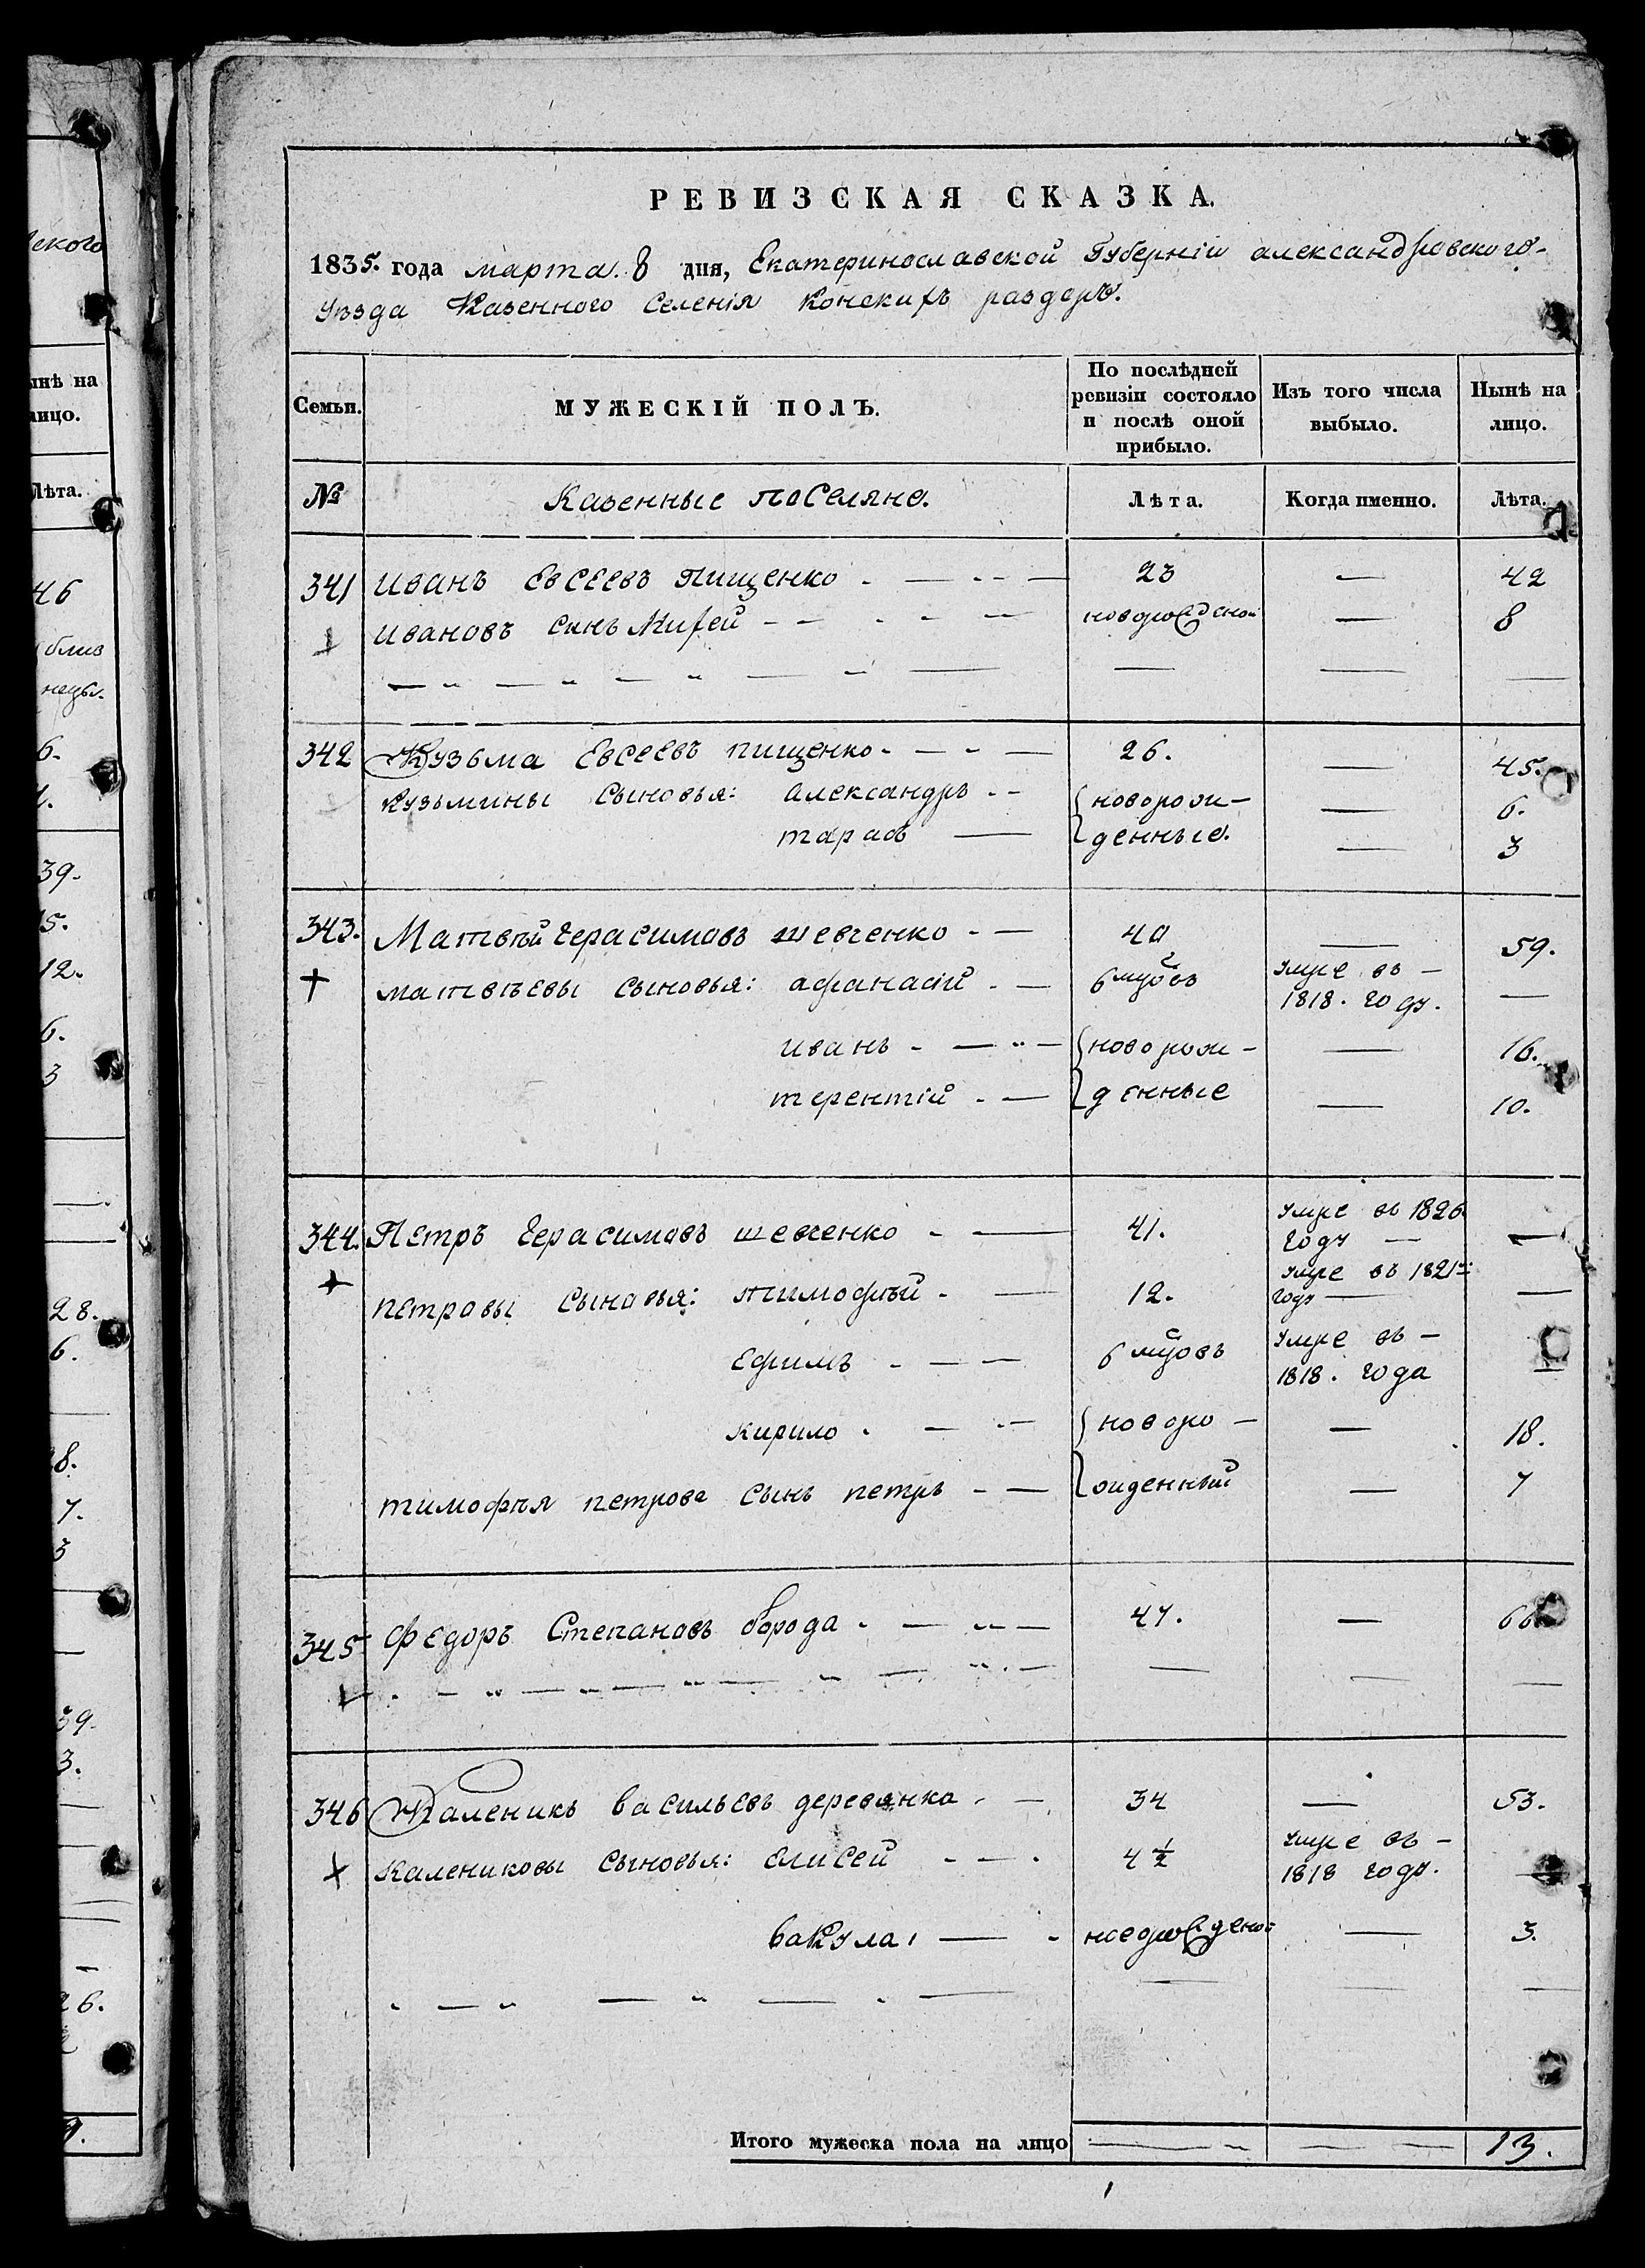 РЕВИЗСКАЯ СКАЗКА.
1835. года марта. 8 дня, Екатеринославской Губерніи александровского
уезда Казенного Селенія Конскихъ раздоръ.
Семьи.
МУЖЕСКІЙ ПОЛЪ.
По послѣдней
ревизіи состояло
и послѣ оной
прибыло.
Изъ того числа
выбыло.
Нынѣ на
лицо.
№
Казенные поселяне.
Лѣта.
Когда именно.
Лѣта.
341 Иванъ Евсеевъ Пищенко 23 — 42
Ивановъ сынъ Михей новорожденой — 8
342 Кузьма Евсеевъ пищенко 26. — 45.
Кузьмины сыновья: александръ новорож- — 6.
тарасъ денные. — 3
343. Матвѣй Герасимовъ шевченко 40 — 59.
матвѣевы сыновья: афанасій 6 мцовъ умре въ —
1818. году. —
иванъ новорож- — 16.
терентій денные — 10.
344. Петръ Герасимовъ шевченко 41. умре въ 1826.
году —
петровы сыновья: тимофѣй 12. умре въ 1821м
году —
Ефимъ 6 мцовъ умре въ —
1818. года —
кирило новоро- — 18.
тимофѣя петрова сынъ петръ жденный — 7
345 Федоръ Степановъ борода 47. — 66
346 Каленикъ васильевъ деревянка 34 — 53.
Калениковы сыновья: Елисей 4 1/2 умре въ —
1818 году. —
вакула новорожденой — 3.
Итого мужеска пола на лицо 13.
ского
нынѣ на
лицо.
Лѣта.
46
близ
6.
39.
15.
12.
6.
3
28.
6.
8.
7.
3
39.
3.
26.